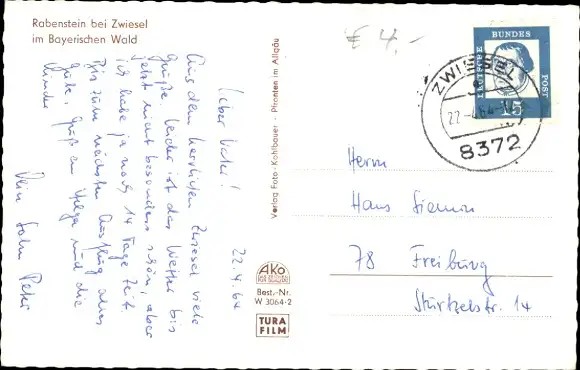 Rabenstein bei Zwiesel
im Bayerischen Wald
22.4.64
Lieber Vater!
Aus dem herrlichen Zwiesel viele
Grüße. Leider ist das Wetter bis
jetzt nicht besonders schön, aber
ich habe ja noch 14 Tage Zeit.
Bis zum nächsten Ausflug alles
Gute. Gruß an Helga und die
Kinder
Dein Sohn Peter
Verlag Foto-Kohlbauer - Pfronten im Allgäu
AKo
Best.-Nr.
W 3064-2
TURA
FILM
€ 4,-
DEUTSCHE BUNDES POST
15
ZWIESEL
22.4.64
8372
Herrn
Hans Siemon
78 Freiburg
Stürtzelstr. 14